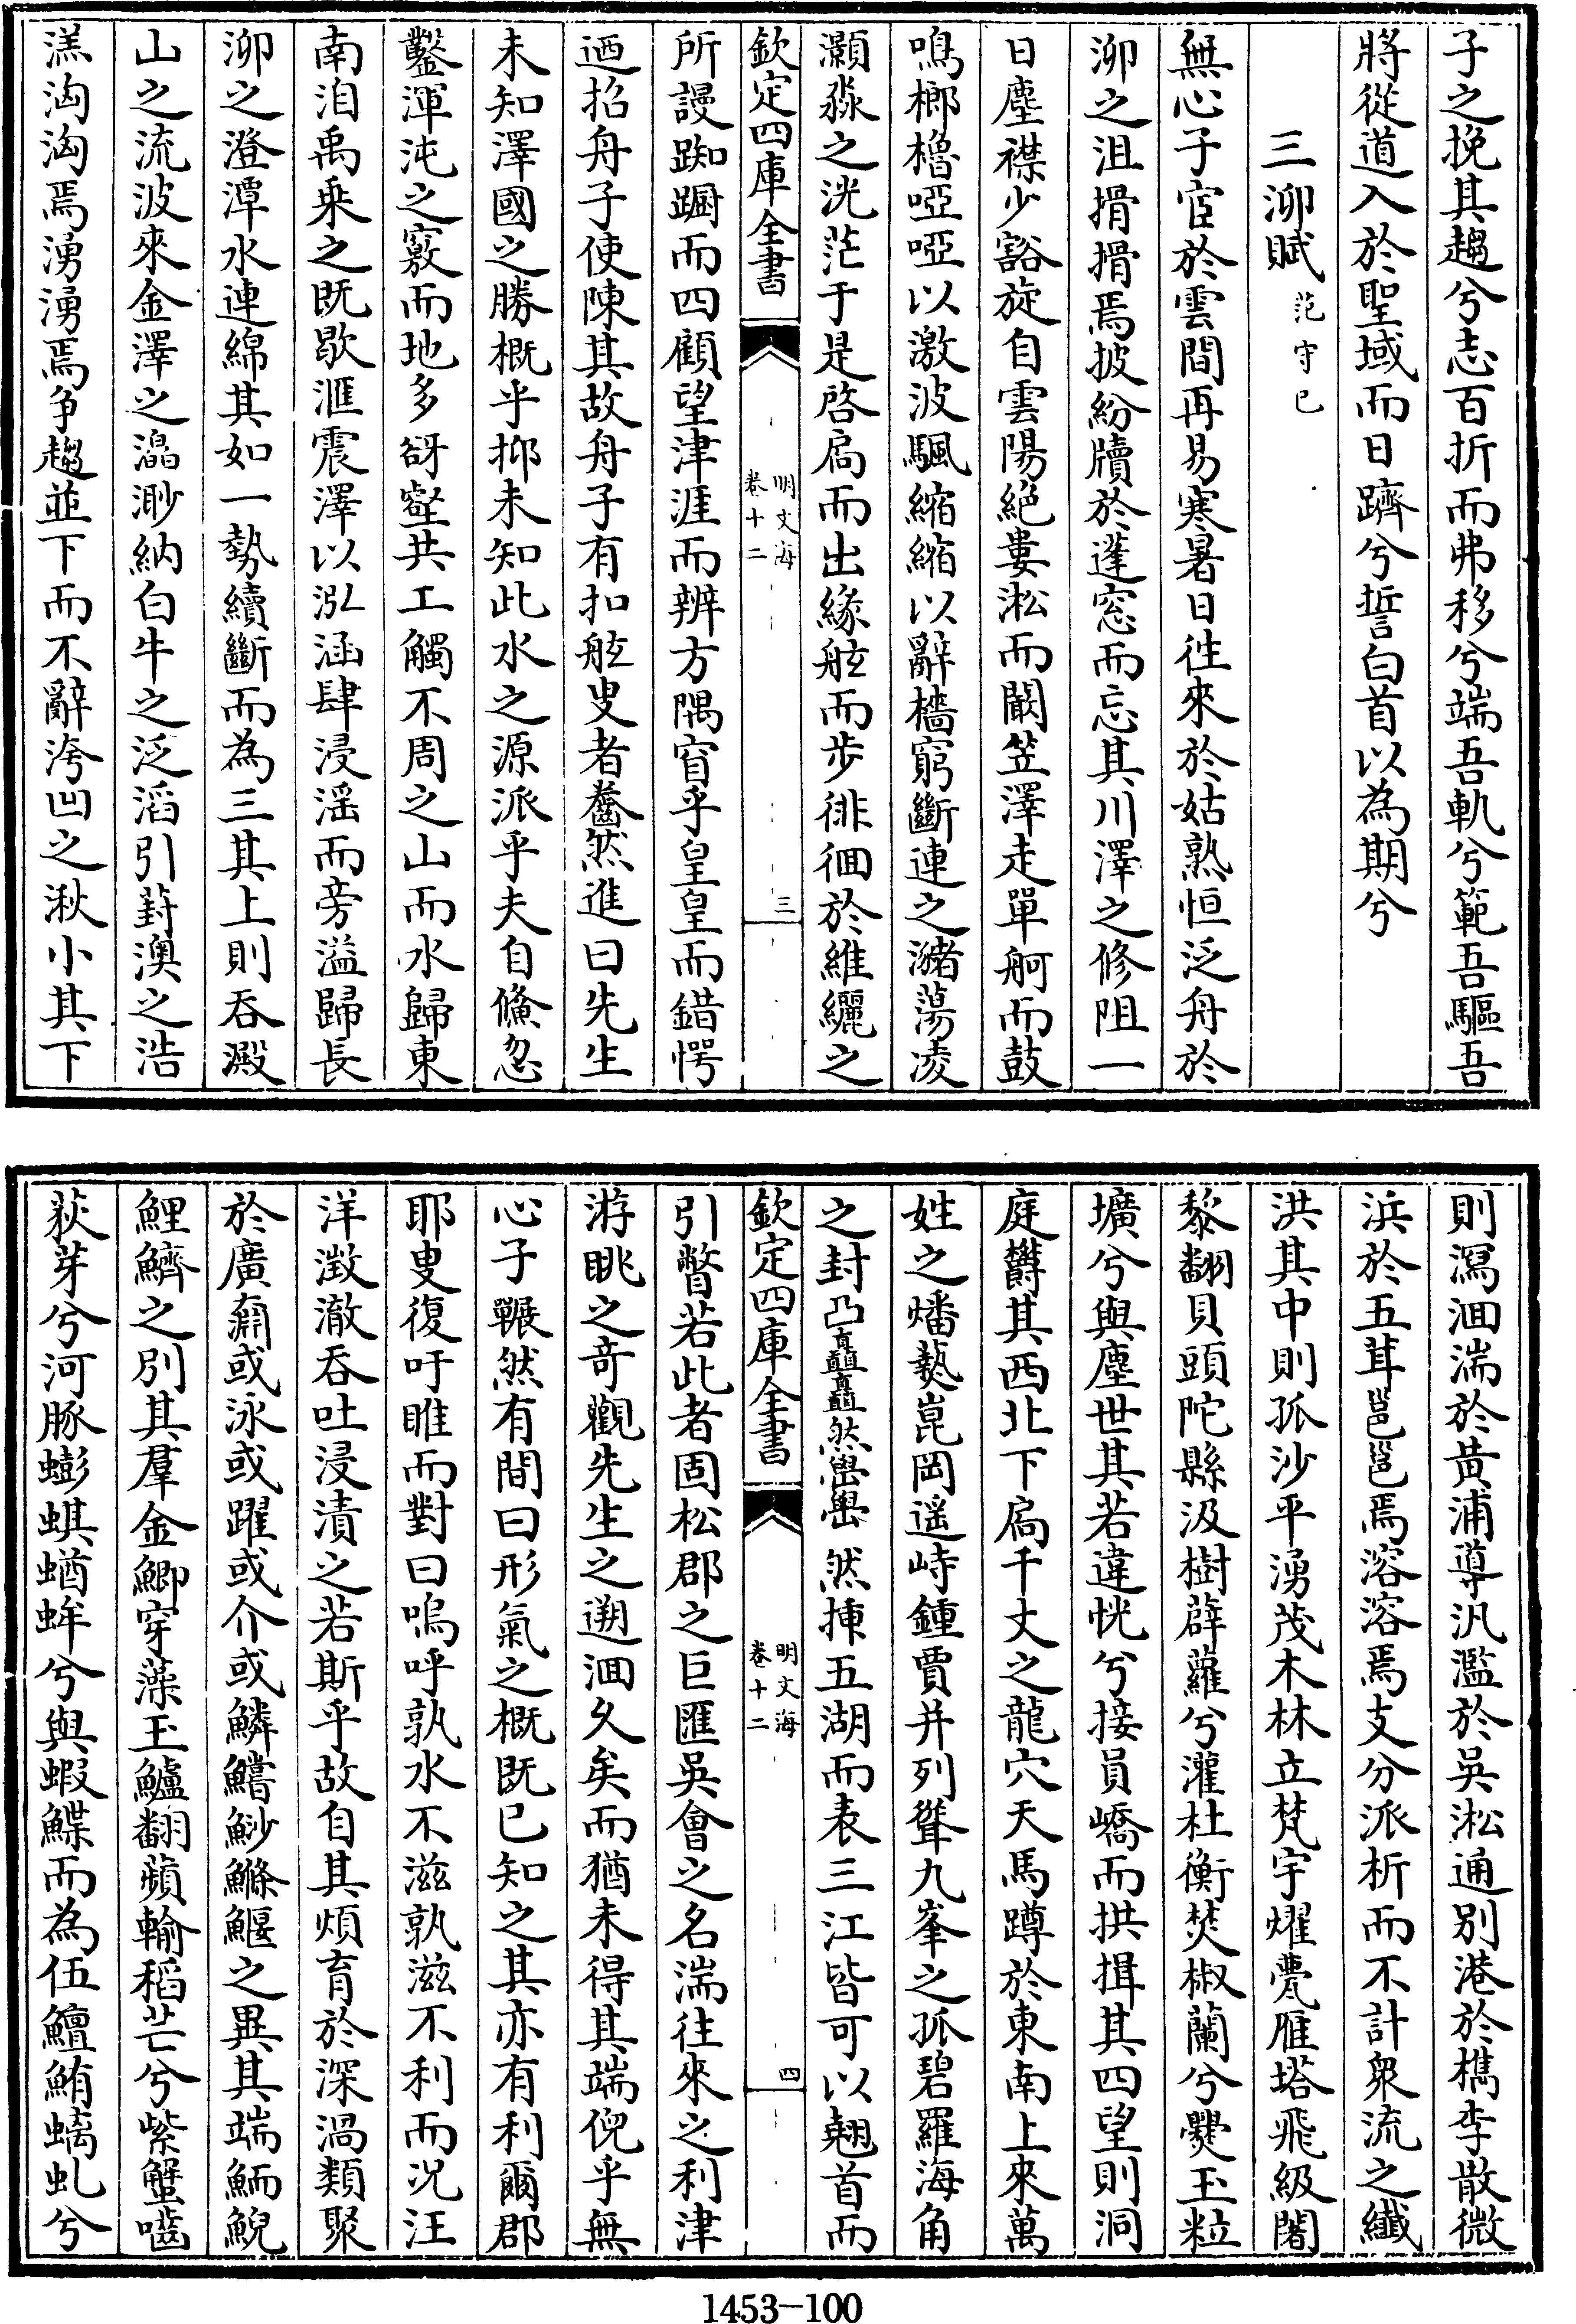 子之挽其趨兮志百折而弗移兮端吾軌兮範吾驅吾
將從道入於聖域而日躋兮誓白首以為期兮
三泖賦范守己
無心子宦於雲間再易寒暑日徃來於姑熟恒泛舟於
泖之沮搰搰焉披紛牘於蓬窓而忘其川澤之修阻一
日塵襟少豁旋自雲陽絶婁淞而闞笠澤走單舸而鼓
鳴榔櫓啞啞以激波颿縮縮以辭檣窮斷連之瀦蕩凌
灝淼之洸茫于是啓扃而出緣舷而步徘徊於維纚之
欽定四庫全書
明文海
卷十二
三
所謾踟蹰而四顧望津涯而辨方隅窅乎皇皇而錯愕
迺招舟子使陳其故舟子有扣舷叟者蠢然進曰先生
未知澤國之勝概乎抑未知此水之源派乎夫自儵忽
鑿渾沌之竅而地多谺壑共工觸不周之山而水歸東
南洎禹乗之既歇滙震澤以泓涵肆浸滛而旁溢歸長
泖之澄潭水連綿其如一勢續斷而為三其上則吞澱
山之流波來金澤之灊渺納白牛之泛滔引葑澳之浩
溔洶洶焉湧湧焉爭趨並下而不辭洿凹之湫小其下
則瀉洄湍於黃浦導汎濫於吳淞通别港於檇李散微
浜於五茸邕邕焉溶溶焉支分派析而不計衆流之纖
洪其中則孤沙平湧茂木林立梵宇燿甍雁塔飛級闍
黎翻貝頭陀縣汲樹薜蘿兮灌杜衡焚椒蘭兮爨玉粒
壙兮與塵世其若違恍兮接員嶠而拱揖其四望則洞
庭欝其西北下扃千丈之龍穴天馬蹲於東南上來萬
姓之燔爇崑岡遥峙鍾賈并列聳九峯之孤碧羅海角
之封凸矗矗然嶨嶨然揀五湖而表三江皆可以翹首而
欽定四庫全書
明文海
卷十二
四
引瞥若此者固松郡之巨匯吳會之名湍往來之利津
游眺之竒觀先生之遡洄久矣而猶未得其端倪乎無
心子囅然有間曰形氣之概既已知之其亦有利爾郡
耶叟復吁睢而對曰嗚呼孰水不滋孰滋不利而况汪
洋澂澈吞吐浸漬之若斯乎故自其煩育於深渦類聚
於廣奫或泳或躍或介或鱗鱨魦鰷鰋之異其端鮞鯢
鯉鱭之别其羣金鯽穿藻玉鱸翻蘋輸稻芒兮紫蟹嚙
荻芽兮河豚蟛蜞蝤蛑兮與蝦鰈而為伍鱣鮪螭虬兮
1453－100